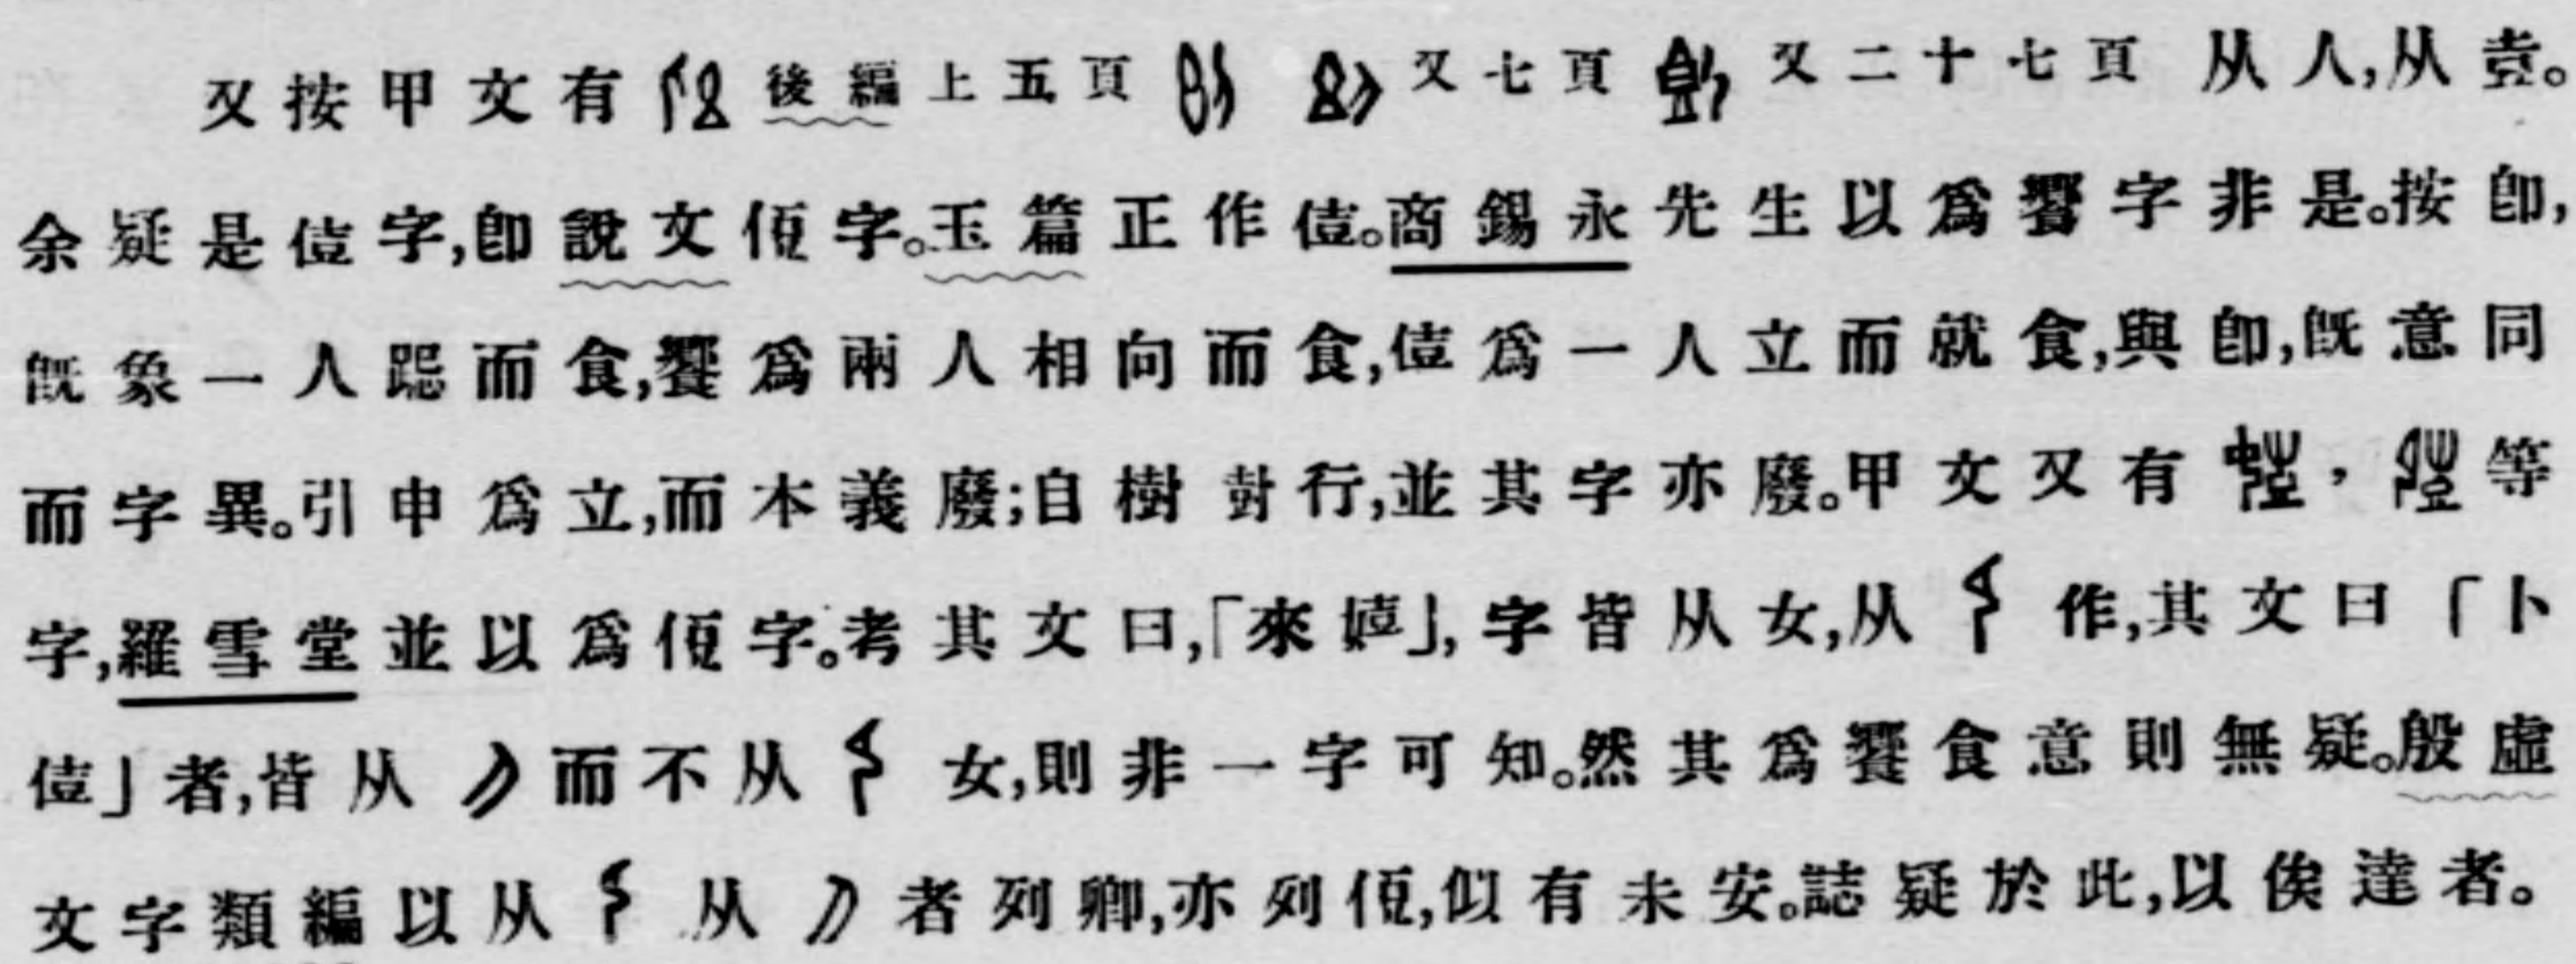 又按甲文有 後編上五頁 又七頁 又二十七頁 从人,从壴。
余疑是僖字,卽說文侸字。玉篇正作僖。商錫永先生以爲饗字非是。按卽,
旣象一人跽而食,饗爲兩人相向而食,僖爲一人立而就食,與卽,旣意同
而字異。引申爲立,而本義廢;自樹尌行,並其字亦廢。甲文又有 , 等
字,羅雪堂並以爲侸字。考其文曰,「來嬉」,字皆从女,从 作,其文曰「卜
」者,皆从 而不从 女,則非一字可知。然其爲饗食意則無疑。殷虛
文字類編以从 从 者列卿,亦列侸,似有未安。誌疑於此,以俟達者。